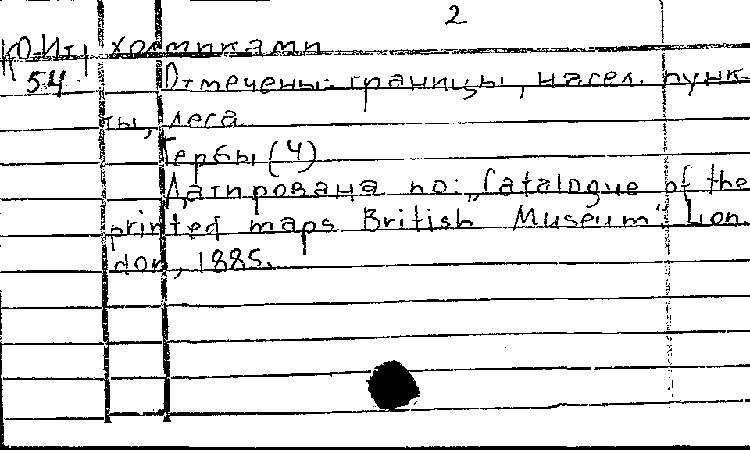 2
КО-Ит/ холмиками
54 Отмечены: границы, насел. пунк-
ты, леса
Гербы (4)
Датирована по: „Catalogue of the
printed maps British Museum". Lon-
don, 1885.